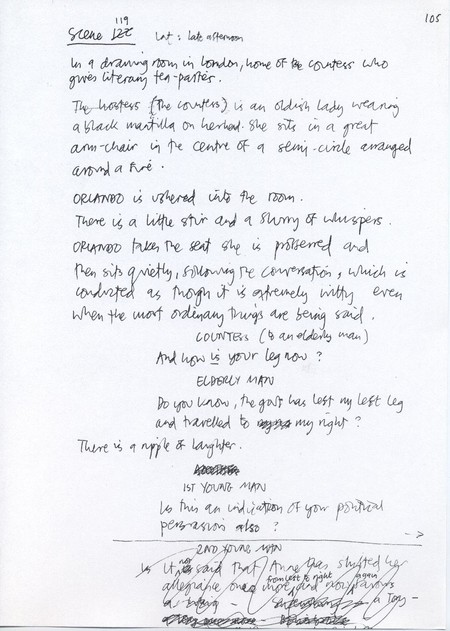 105
119
Scene 122 Int: late afternoon
In a drawing room in London, home of the countess who
gives literary tea-parties.
The hostess (the countess) is an oldish lady wearing
a black mantilla on her head. She sits in a great
arm-chair in the centre of a semi-circle arranged
around a fire.
ORLANDO is ushered into the room.
There is a little stir and a flurry of whispers.
ORLANDO takes the seat she is proffered and
then sits quietly, following the conversation, which is
conducted as though it is extremely witty even
when the most ordinary things are being said.
COUNTESS (to an elderly man)
And how is your leg now?
ELDERLY MAN
Do you know, the gout has left my left leg
and travelled to my right?
There is a ripple of laughter.
1ST YOUNG MAN
Is this an indication of your political
persuasion also?
-->
2ND YOUNG MAN
Is it not said that Anne has shifted her
from left to right again
allegiance once more and now favours
a Tory -